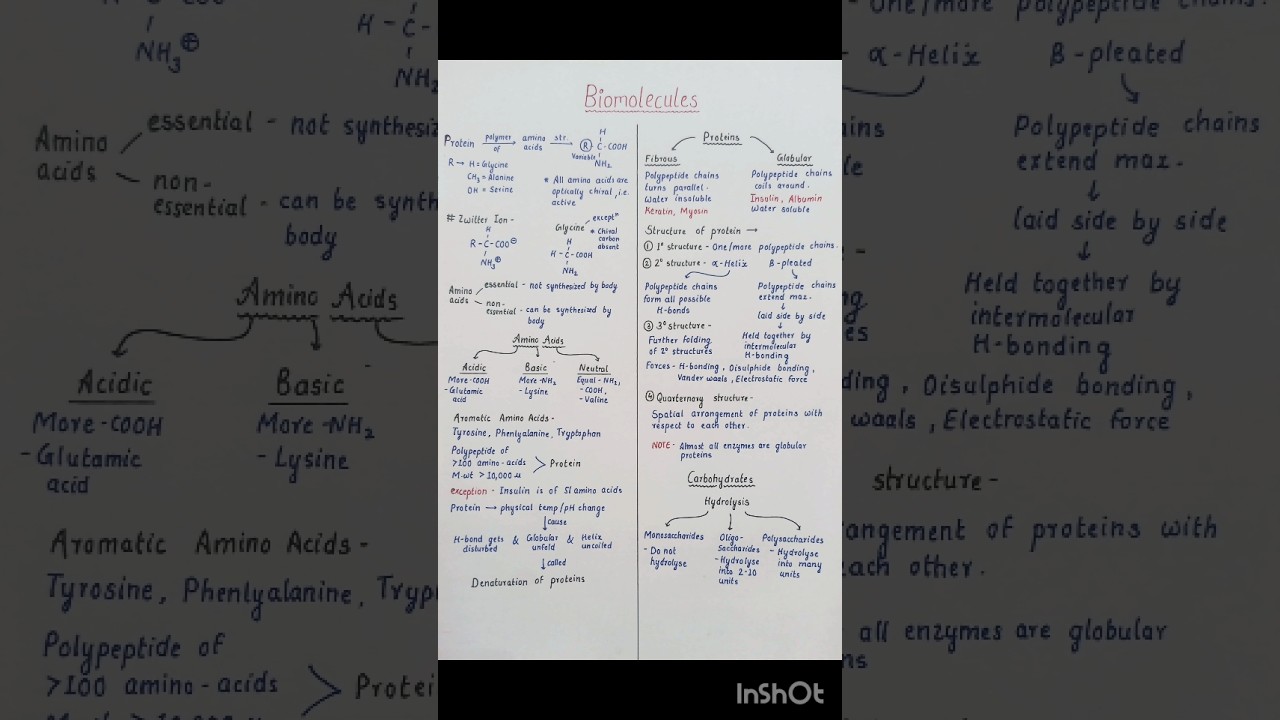 Biomolecules
Protein polymer of amino acids str. (R) - C - COOH
H
Variable
NH2
R → H = Glycine
CH3 = Alanine
OH = Serine
* All amino acids are
optically chiral, i.e.
active
# Zwitter Ion -
H
R - C - COO⊖
NH3⊕
Glycine except*
* Chiral
carbon
absent
H
H - C - COOH
NH2
Amino
acids
essential - not synthesized by body
non-
essential - can be synthesized by
body
Amino Acids
Acidic
More -COOH
- Glutamic
acid
Basic
More -NH2
- Lysine
Neutral
Equal -NH2,
-COOH,
- Valine
Aromatic Amino Acids -
Tyrosine, Phenlyalanine, Tryptophan
Polypeptide of
>100 amino-acids
M.wt > 10,000 u
Protein
exception - Insulin is of 51 amino acids
Protein → physical temp/pH change
↓ cause
H-bond gets
disturbed
& Globular
unfold
& Helix
uncoiled
↓ called
Denaturation of proteins
Proteins
Fibrous
Polypeptide chains
turns parallel.
Water insoluble
Keratin, Myosin
Globular
Polypeptide chains
coils around.
Insulin, Albumin
Water soluble
Structure of protein →
① 1° structure - One/more polypeptide chains.
② 2° structure - α-Helix β-pleated
Polypeptide chains
form all possible
H-bonds
Polypeptide chains
extend max.
↓
laid side by side
↓
Held together by
intermolecular
H-bonding
③ 3° structure -
Further folding
of 2° structures
Forces - H-bonding, Disulphide bonding,
Vander waals, Electrostatic force
④ Quarternary structure -
Spatial arrangement of proteins with
respect to each other.
NOTE - Almost all enzymes are globular
proteins
Carbohydrates
Hydrolysis
Monosaccharides
- Do not
hydrolyse
Oligo-
Saccharides
- Hydrolyse
into 2-10
units
Polysaccharides
- Hydrolyse
into many
units
InShOt